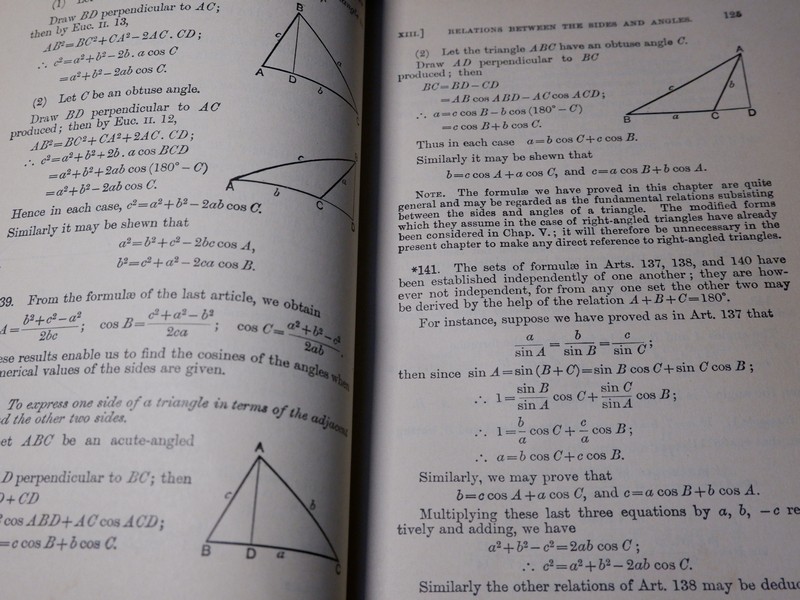 (1)
Draw BD perpendicular to AC;
then by Euc. II. 13,
AB²=BC²+CA²-2AC.CD;
∴ c²=a²+b²-2b.a cos C
=a²+b²-2ab cos C.
(2) Let C be an obtuse angle.
Draw BD perpendicular to AC
produced; then by Euc. II. 12,
AB²=BC²+CA²+2AC.CD;
∴ c²=a²+b²+2b.a cos BCD
=a²+b²+2ab cos (180°-C)
=a²+b²-2ab cos C.
Hence in each case, c²=a²+b²-2ab cos C.
Similarly it may be shewn that
a²=b²+c²-2bc cos A,
b²=c²+a²-2ca cos B.
39. From the formulæ of the last article, we obtain
A=(b²+c²-a²)/2bc; cos B=(c²+a²-b²)/2ca; cos C=(a²+b²-c²)/2ab.
results enable us to find the cosines of the angles when
values of the sides are given.
To express one side of a triangle in terms of the adjacent
the other two sides.
ABC be an acute-angled
D perpendicular to BC; then
+CD
cos ABD+AC cos ACD;
=c cos B+b cos C.
B
A D b C
c
B
A b C D
c a
A
c b
B D a C
XIII.] RELATIONS BETWEEN THE SIDES AND ANGLES. 125
(2) Let the triangle ABC have an obtuse angle C.
Draw AD perpendicular to BC
produced; then
BC=BD-CD
=AB cos ABD-AC cos ACD;
∴ a=c cos B-b cos (180°-C)
=c cos B+b cos C.
A
c b
B a C D
Thus in each case a=b cos C+c cos B.
Similarly it may be shewn that
b=c cos A+a cos C, and c=a cos B+b cos A.
NOTE. The formulæ we have proved in this chapter are quite
general and may be regarded as the fundamental relations subsisting
between the sides and angles of a triangle. The modified forms
which they assume in the case of right-angled triangles have already
been considered in Chap. V.; it will therefore be unnecessary in the
present chapter to make any direct reference to right-angled triangles.
*141. The sets of formulæ in Arts. 137, 138, and 140 have
been established independently of one another; they are how-
ever not independent, for from any one set the other two may
be derived by the help of the relation A+B+C=180°.
For instance, suppose we have proved as in Art. 137 that
a/sin A = b/sin B = c/sin C;
then since sin A=sin (B+C)=sin B cos C+sin C cos B;
∴ 1 = sin B/sin A cos C + sin C/sin A cos B;
∴ 1 = b/a cos C + c/a cos B;
∴ a=b cos C+c cos B.
Similarly, we may prove that
b=c cos A+a cos C, and c=a cos B+b cos A.
Multiplying these last three equations by a, b, -c re
tively and adding, we have
a²+b²-c²=2ab cos C;
∴ c²=a²+b²-2ab cos C.
Similarly the other relations of Art. 138 may be deduc